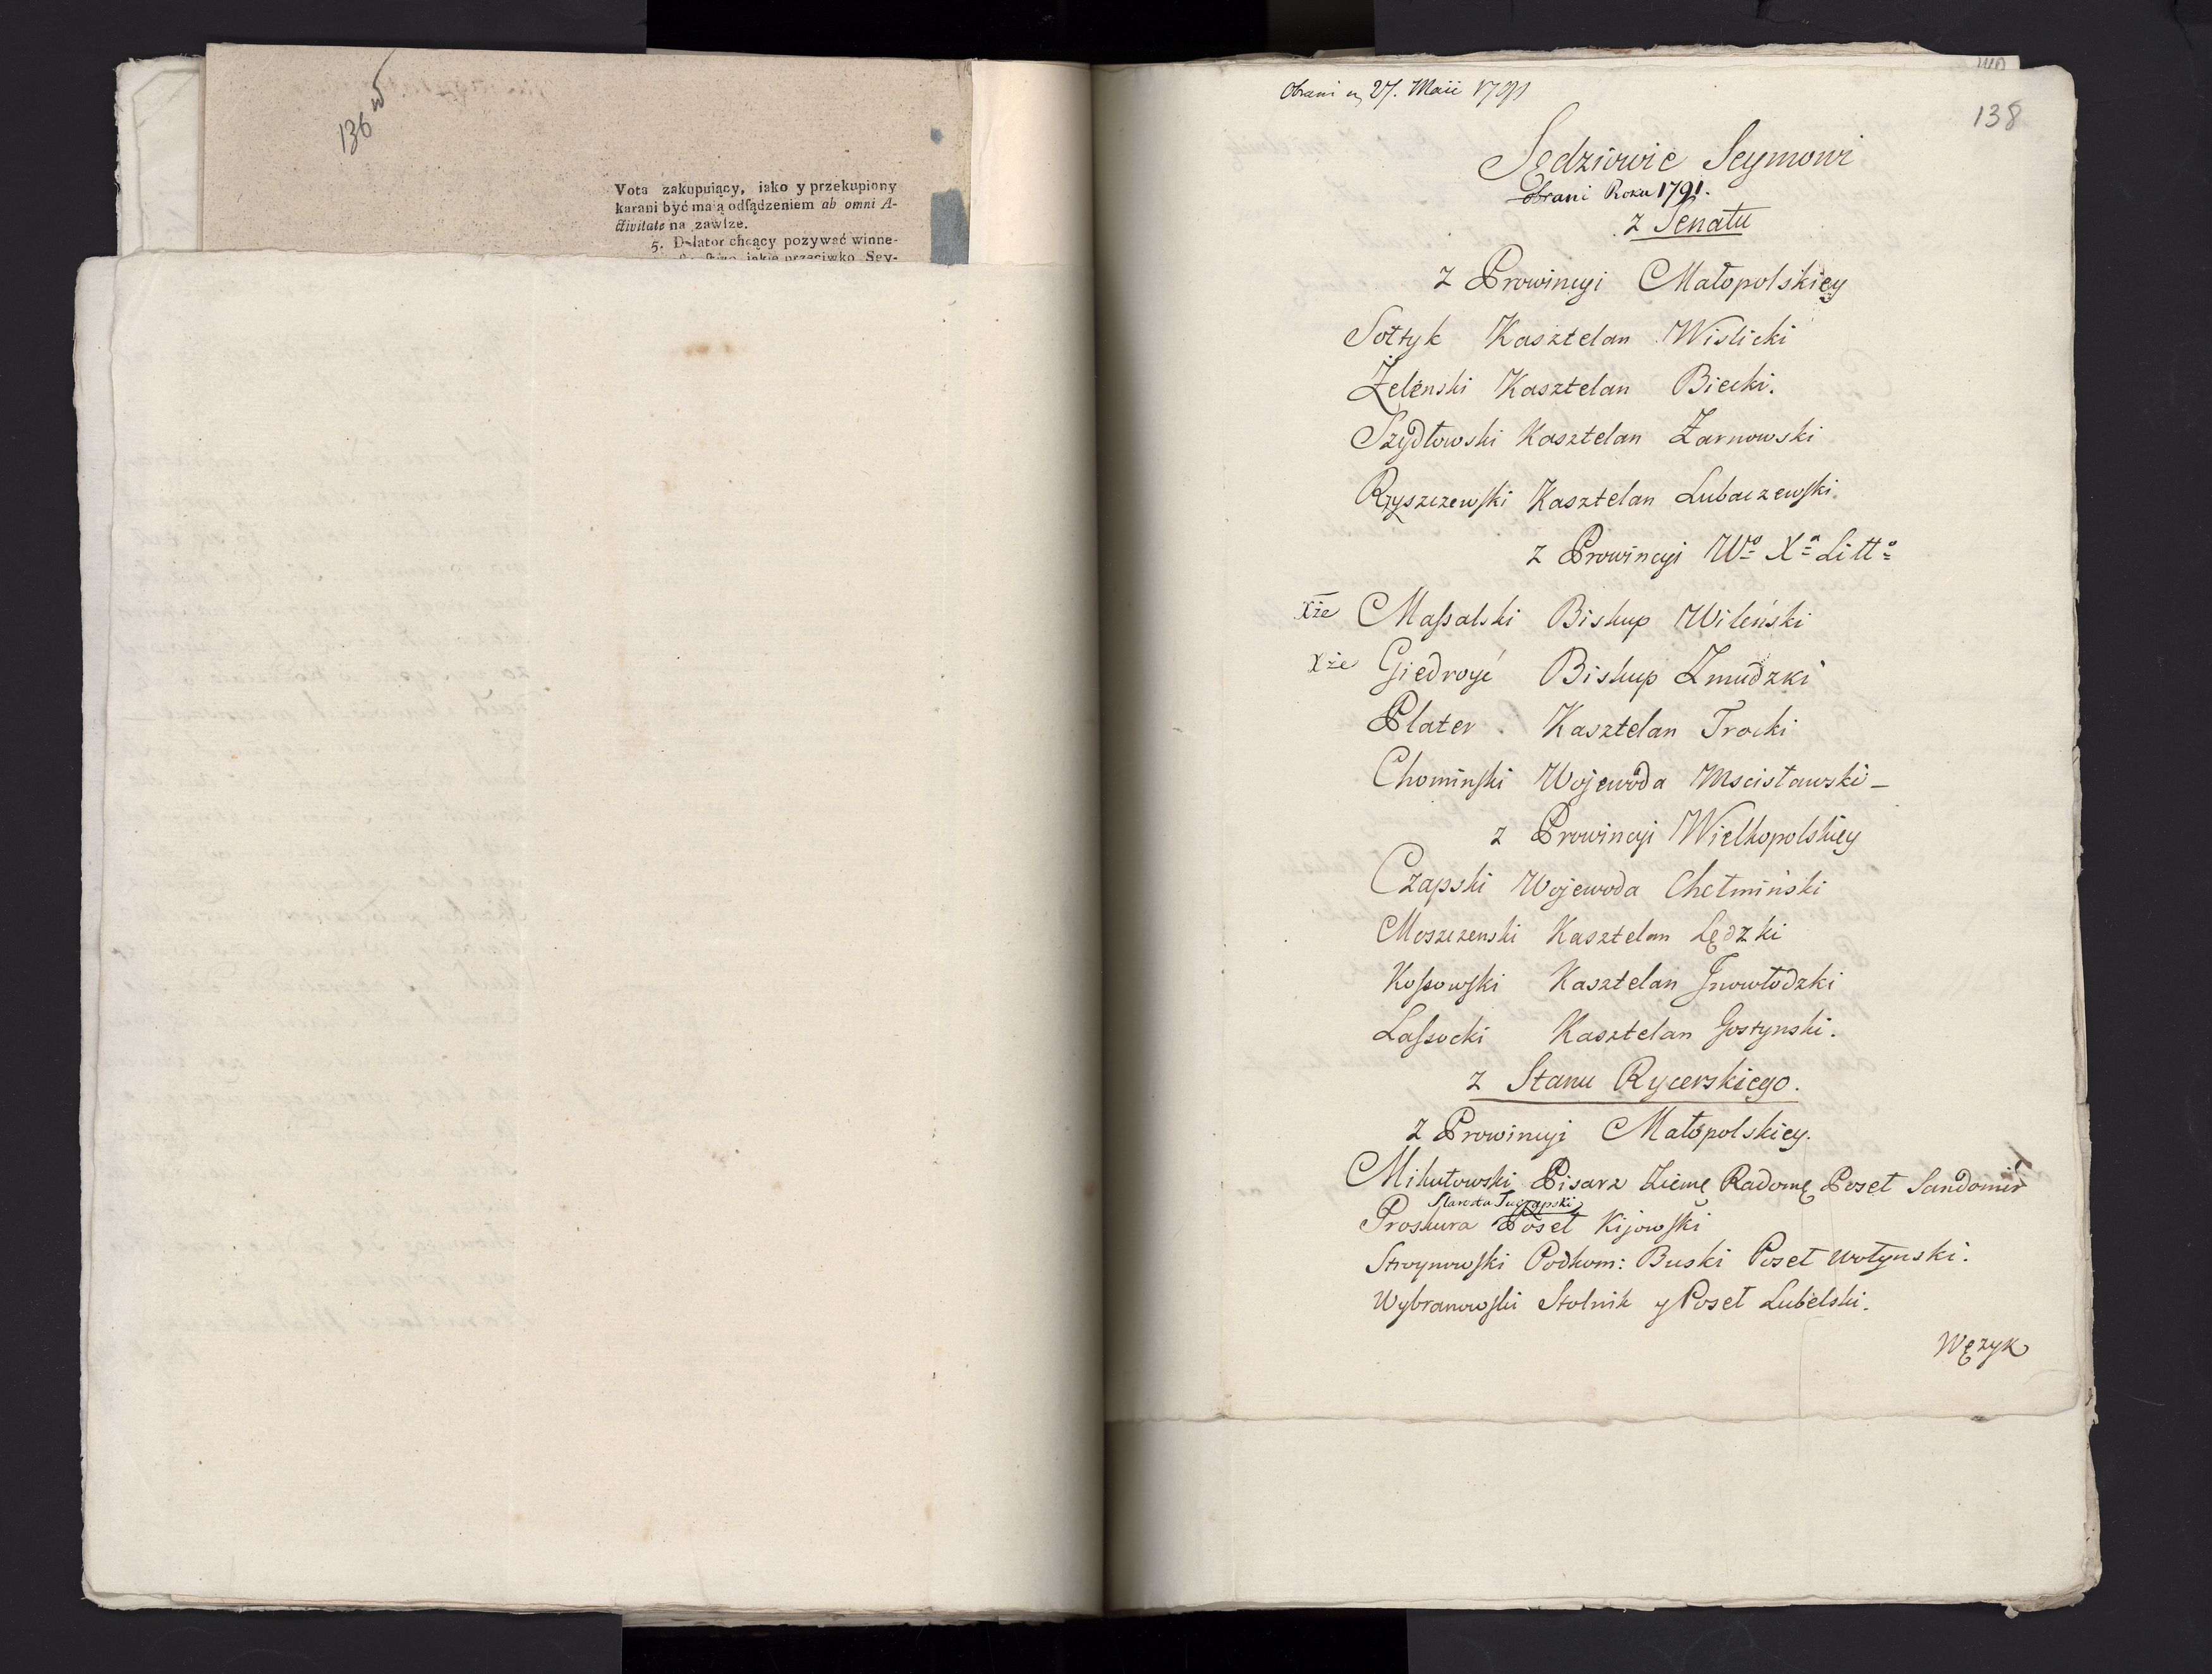 136 w
Vota zakupuiący, iako y przekupiony
karani być maią odſądzeniem ab omni A-
ctivitate na zawſze.
5. Delator chcący pozywać winne-
jakie przeciwko Sey-
Obrani 27. Maii 1791
138
Sędziowie Seymowi
obrani Roku 1791.
z Senatu
z Prowincyi Małopolskiey
Sołtyk Kasztelan Wislicki
Żeleński Kasztelan Biecki.
Szydłowski Kasztelan Żarnowski
Rzyszczewſki Kasztelan Lubaczewſki.
z Prowincyi Wº Xª Littº
Xże Maſsalski Biskup Wileński
Xże Giedroyć Biskup Zmudzki
Plater Kasztelan Trocki
Chominſki Wojewoda Mscisławski –
z Prowincyi Wielkopolskiey
Czapski Wojewoda Chełmiński
Moszczenski Kasztelan Lędzki
Koſsowſki Kasztelan Jnowłodzki
Laſsocki Kasztelan Gostynski.
z Stanu Rycerskiego.
z Prowincyi Małopolskiey.
Mikułowski Pisarz Ziemę Radomę Poseł Sandomir
Starosta Tuczapski
Proskura Poseł Kijowſki
Stroynowſki Podkom: Buski Poseł Wołynski.
Wybranowſki Stolnik y Poseł Lubelski.
Wężyk